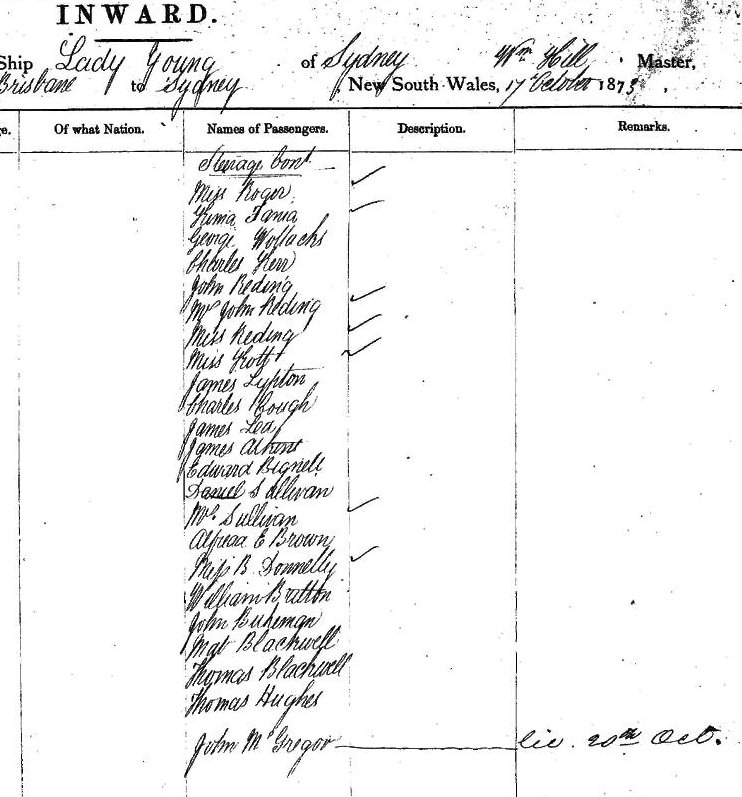 INWARD.
Ship Lady Young of Sydney Wm Hill Master,
Brisbane to Sydney New South Wales, 17 October 1873.
Of what Nation. Names of Passengers. Description. Remarks.
Steerage Cont.
Miss Roger
George
Charles Kerr
John Reding
Mrs John Reding
Miss Reding
Miss
James
Charles Cough
James Lea
James
Edward Bignell
Daniel Sullivan
Mrs. Sullivan
Alfred E Brown
Miss B. Donnelly
William Britton
John
Mat Blackwell
Thomas Blackwell
Thomas Hughes
John McGregor 20th Oct.